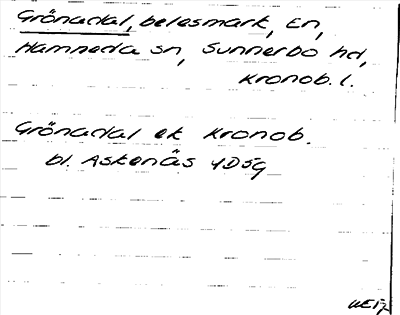 Grönadal, betesmark, En,
Hamneda sn, Sunnerbo hd,
Kronob. l.
Grönadal ek Kronob.
bl. Askenäs 4D5g